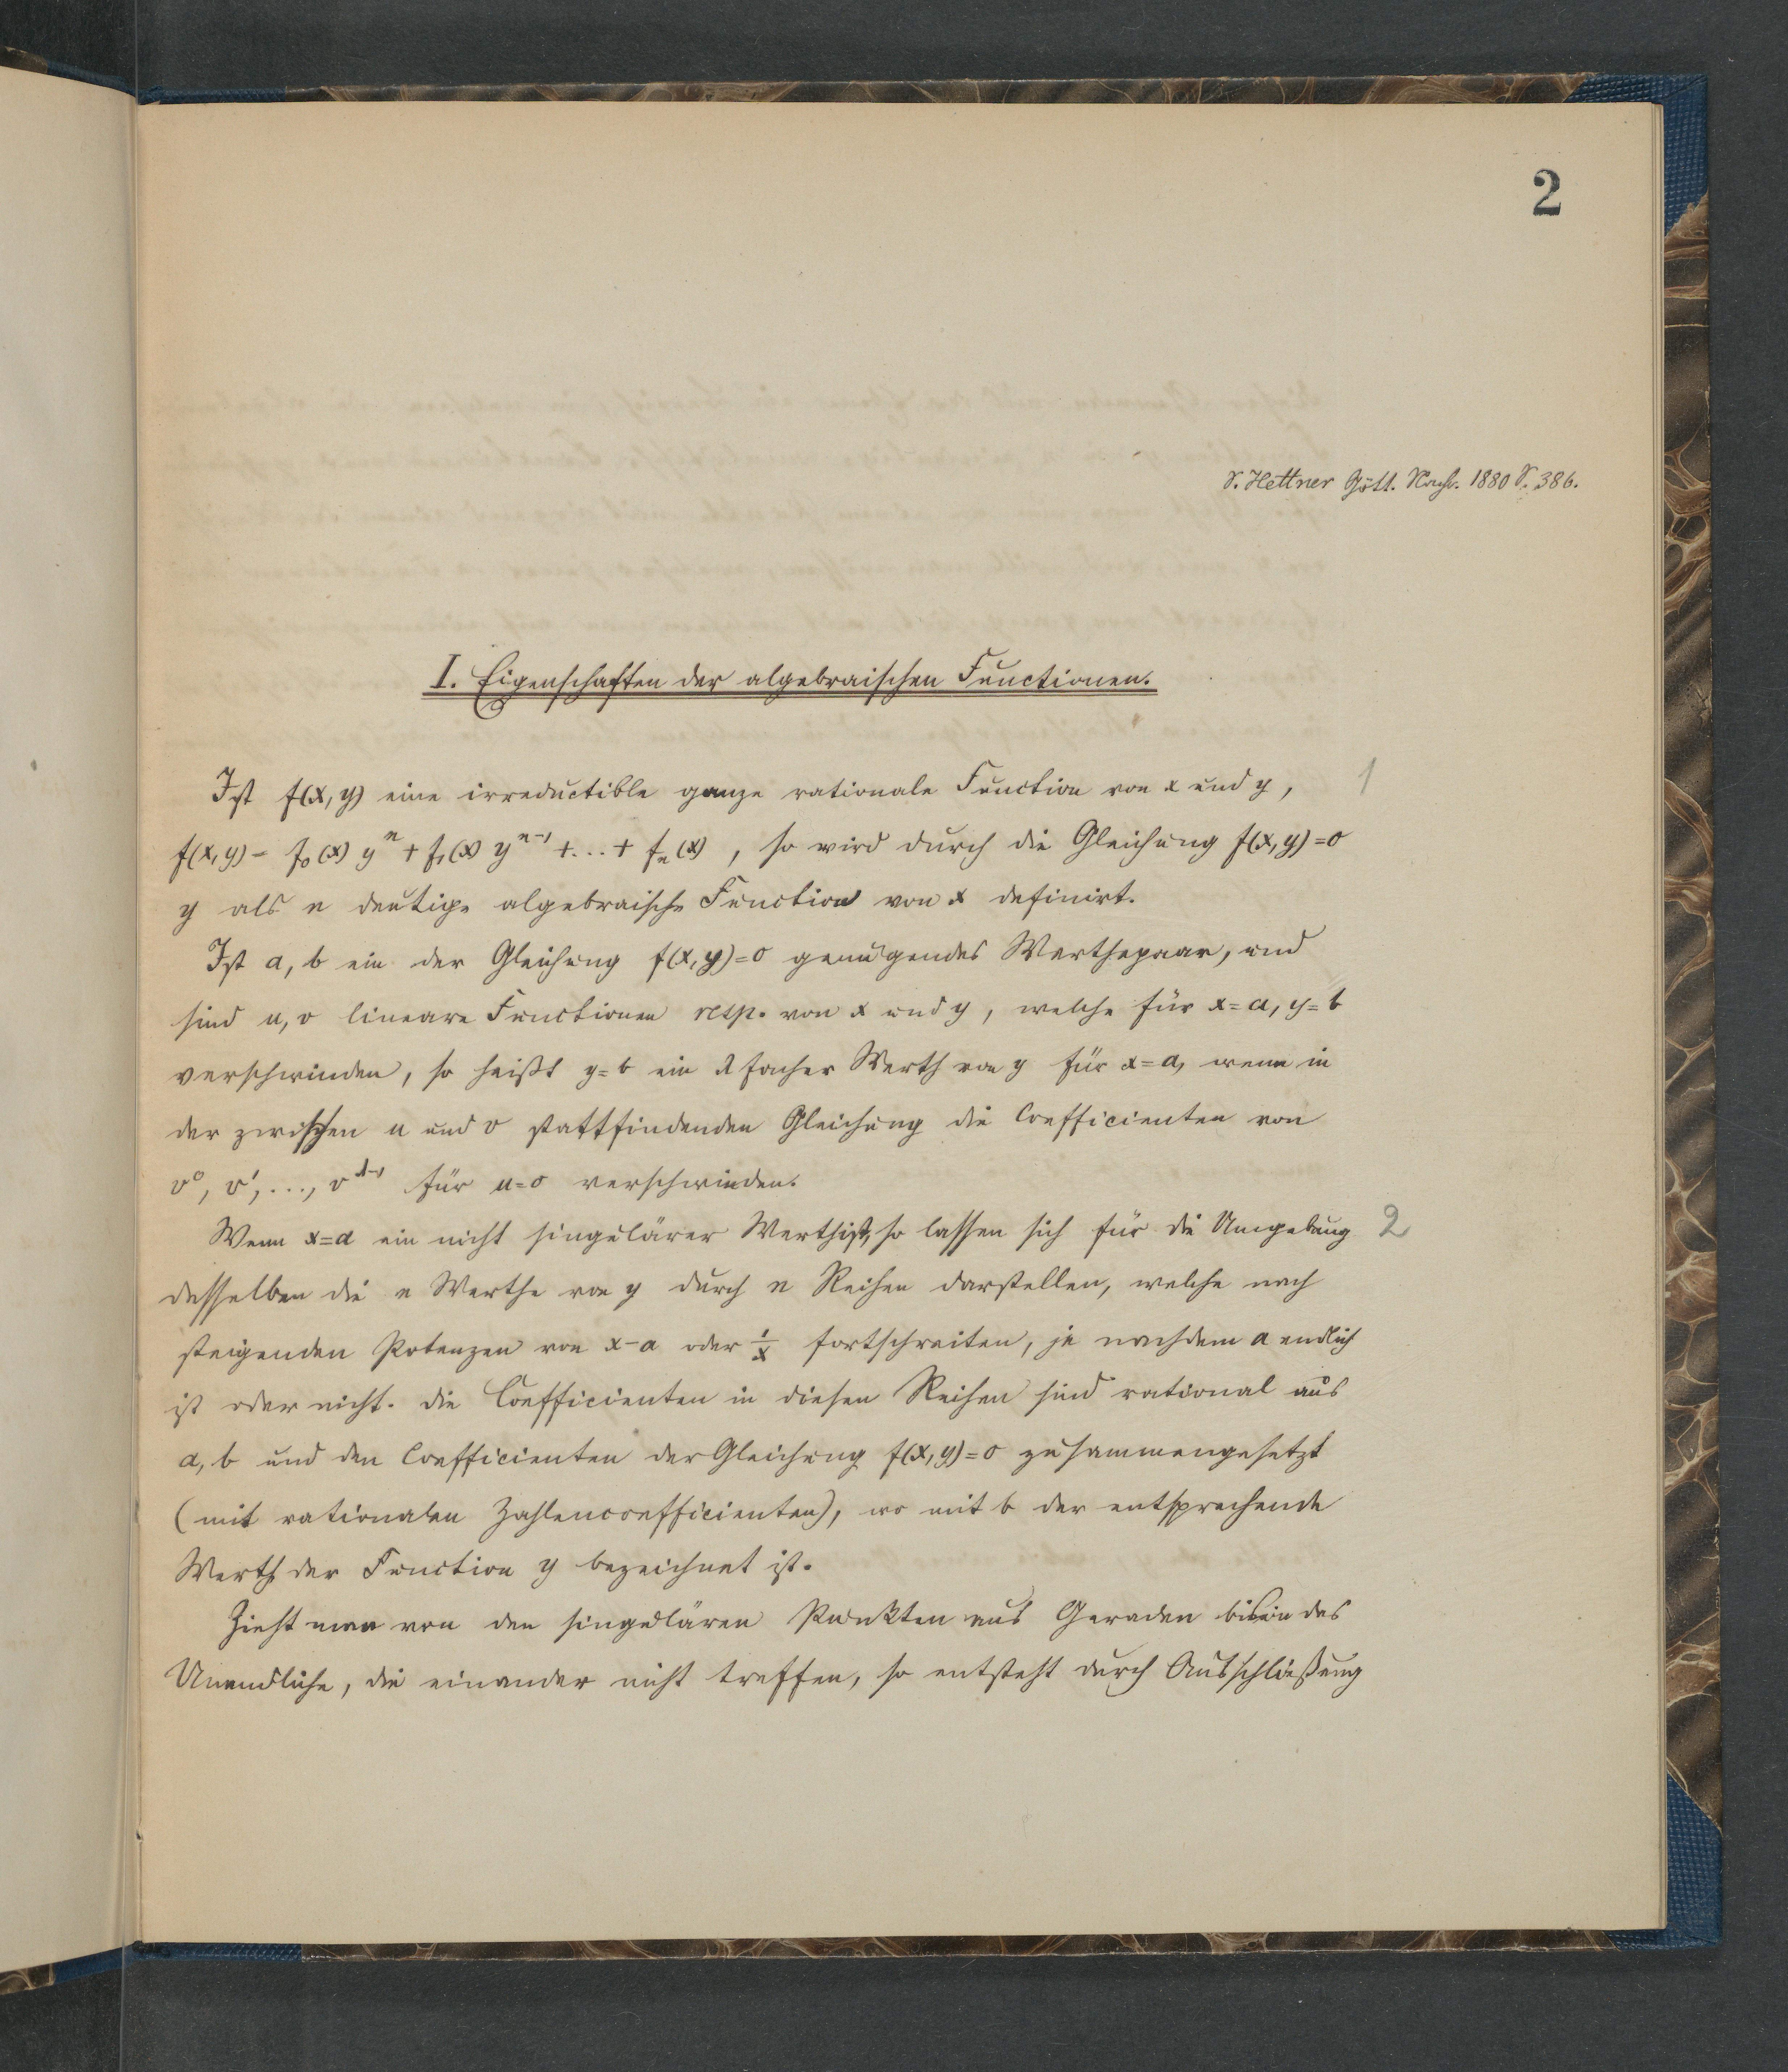 2
S. Hettner Gött. Nachr. 1880 S. 386.
I. Eigenschaften der algebraischen Functionen.
Ist f(x, y) eine irreductible ganze rationale Function von x und y, 1
f(x, y) = f₀(x) yⁿ + f₁(x) yⁿ⁻¹ + ... + fₙ(x), so wird durch die Gleichung f(x, y) = 0
y als n deutige algebraische Function von x definirt.
Ist a, b ein der Gleichung f(x, y) = 0 genügendes Werthepaar, und
sind u, v lineare Functionen resp. von x und y, welche für x = a, y = b
verschwinden, so heißt y = b ein λ facher Werth von y für x = a, wenn in
der zwischen u und v stattfindenden Gleichung die Coefficienten von
v⁰, v¹, ..., v^{λ-1} für u = 0 verschwinden.
Wenn x = a ein nicht singulärer Werth ist, so lassen sich für die Umgebung 2
desselben die n Werthe von y durch n Reihen darstellen, welche nach
steigenden Potenzen von x - a oder 1/x fortschreiten, je nachdem a endlich
ist oder nicht. Die Coefficienten in diesen Reihen sind rational aus
a, b und den Coefficienten der Gleichung f(x, y) = 0 zusammengesetzt
(mit rationalen Zahlencoefficienten), wo mit b der entsprechende
Werth der Function y bezeichnet ist.
Zieht man von den singulären Punkten aus Geraden bis in das
Unendliche, die einander nicht treffen, so entsteht durch Ausschließung